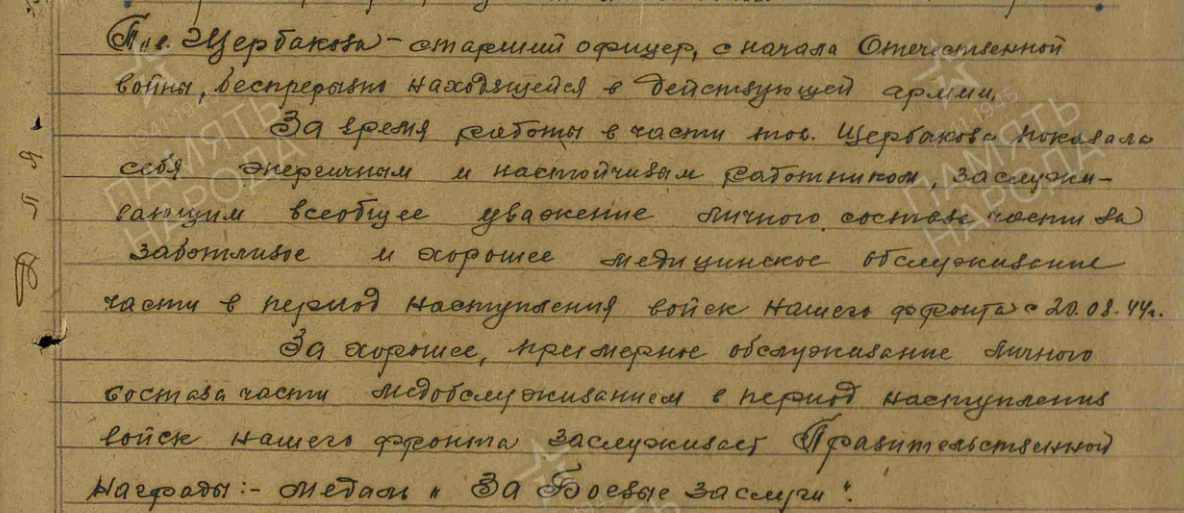 Тов. Щербакова – старший офицер, с начала Отечественной
войны, беспрерывно находящейся в действующей армии.
За время работы в части тов. Щербакова показала
себя энергичным и настойчивым работником, заслужи-
вающим всеобщее уважение личного состава части за
заботливое и хорошее медицинское обслуживание
части в период наступления войск нашего фронта с 20.08.44г.
За хорошее, примерное обслуживание личного
состава части медобслуживанием в период наступления
войск нашего фронта заслуживает Правительственной
награды:- медаль "За Боевые заслуги".
ПАМЯТЬ
НАРОДА
1941-1945
ПАМЯТЬ
НАРОДА
1941-1945